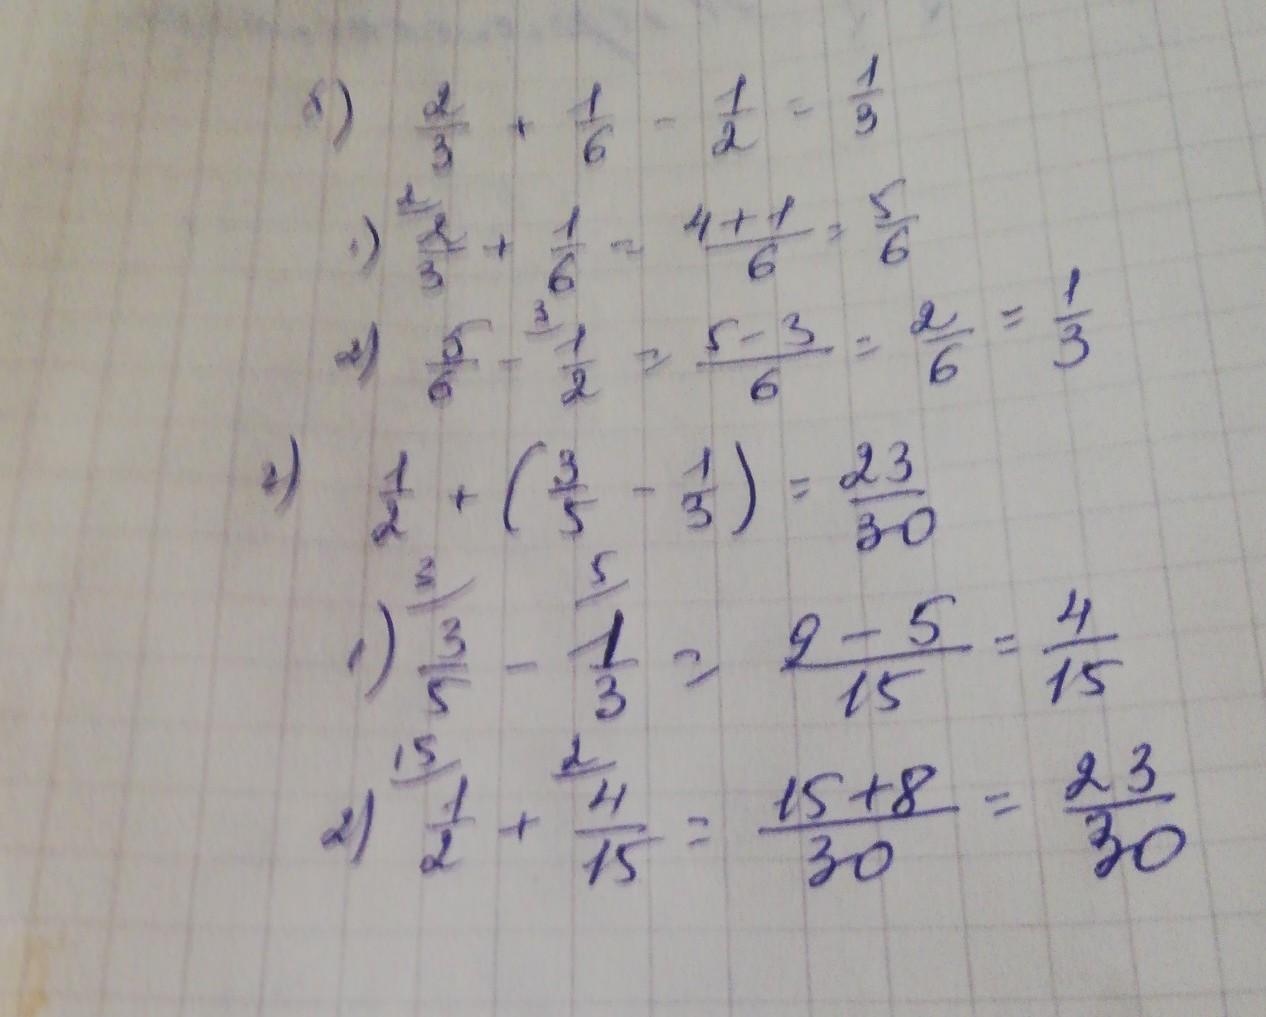 б) 2/3 + 1/6 - 1/2 = 1/3
1) 2/ 2/3 + 1/6 = 4+1/6 = 5/6
2) 5/6 - 3/ 1/2 = 5-3/6 = 2/6 = 1/3
г) 1/2 + (3/5 - 1/3) = 23/30
1) 3/ 3/5 - 5/ 1/3 = 9-5/15 = 4/15
2) 15/ 1/2 + 2/ 4/15 = 15+8/30 = 23/30